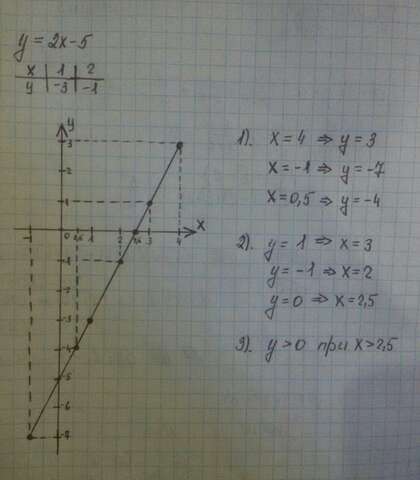 y = 2x-5
x | 1 | 2
y | -3 | -1
y
3
2
1
x
-1 0 0,5 1 2 2,5 3 4
-1
-2
-3
-4
-5
-6
-7
1). x = 4 ⇒ y = 3
x = -1 ⇒ y = -7
x = 0,5 ⇒ y = -4
2). y = 1 ⇒ x = 3
y = -1 ⇒ x = 2
y = 0 ⇒ x = 2,5
3). y > 0 при x > 2,5